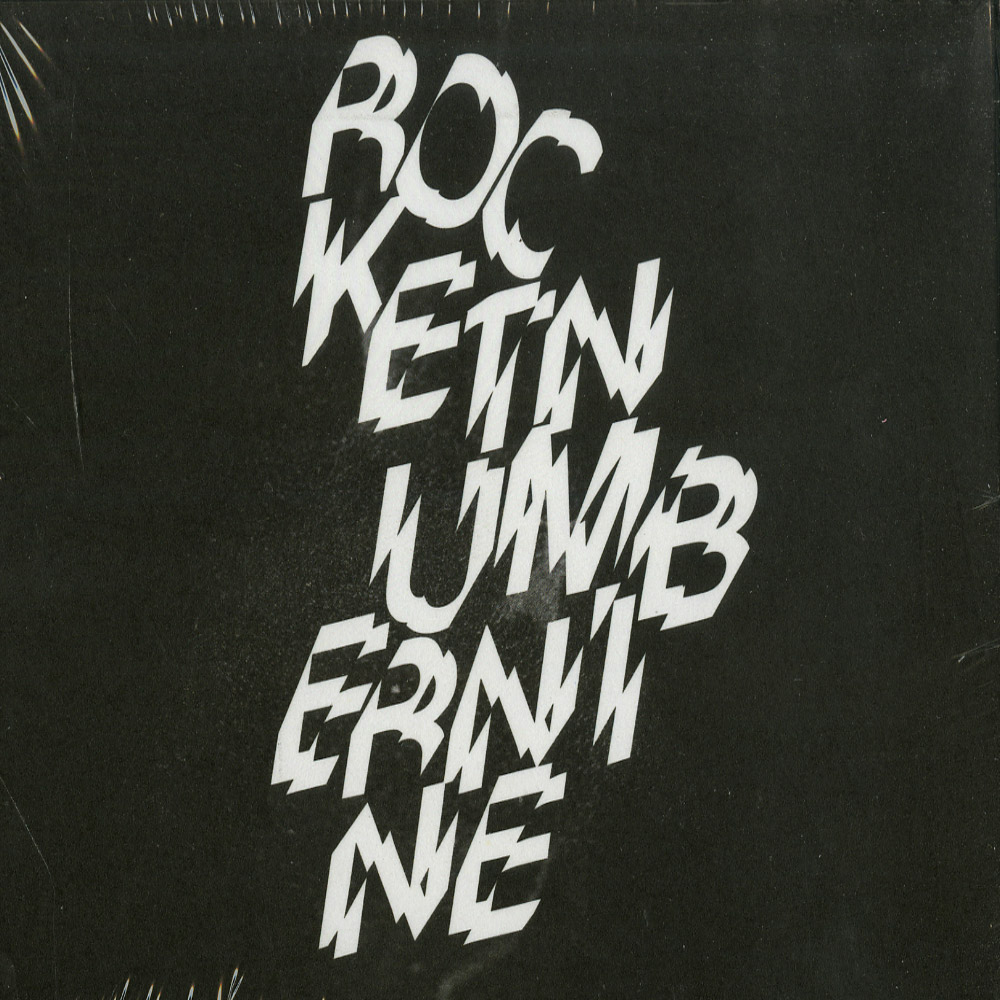 ROC
KETN
UMB
ERNI
NE